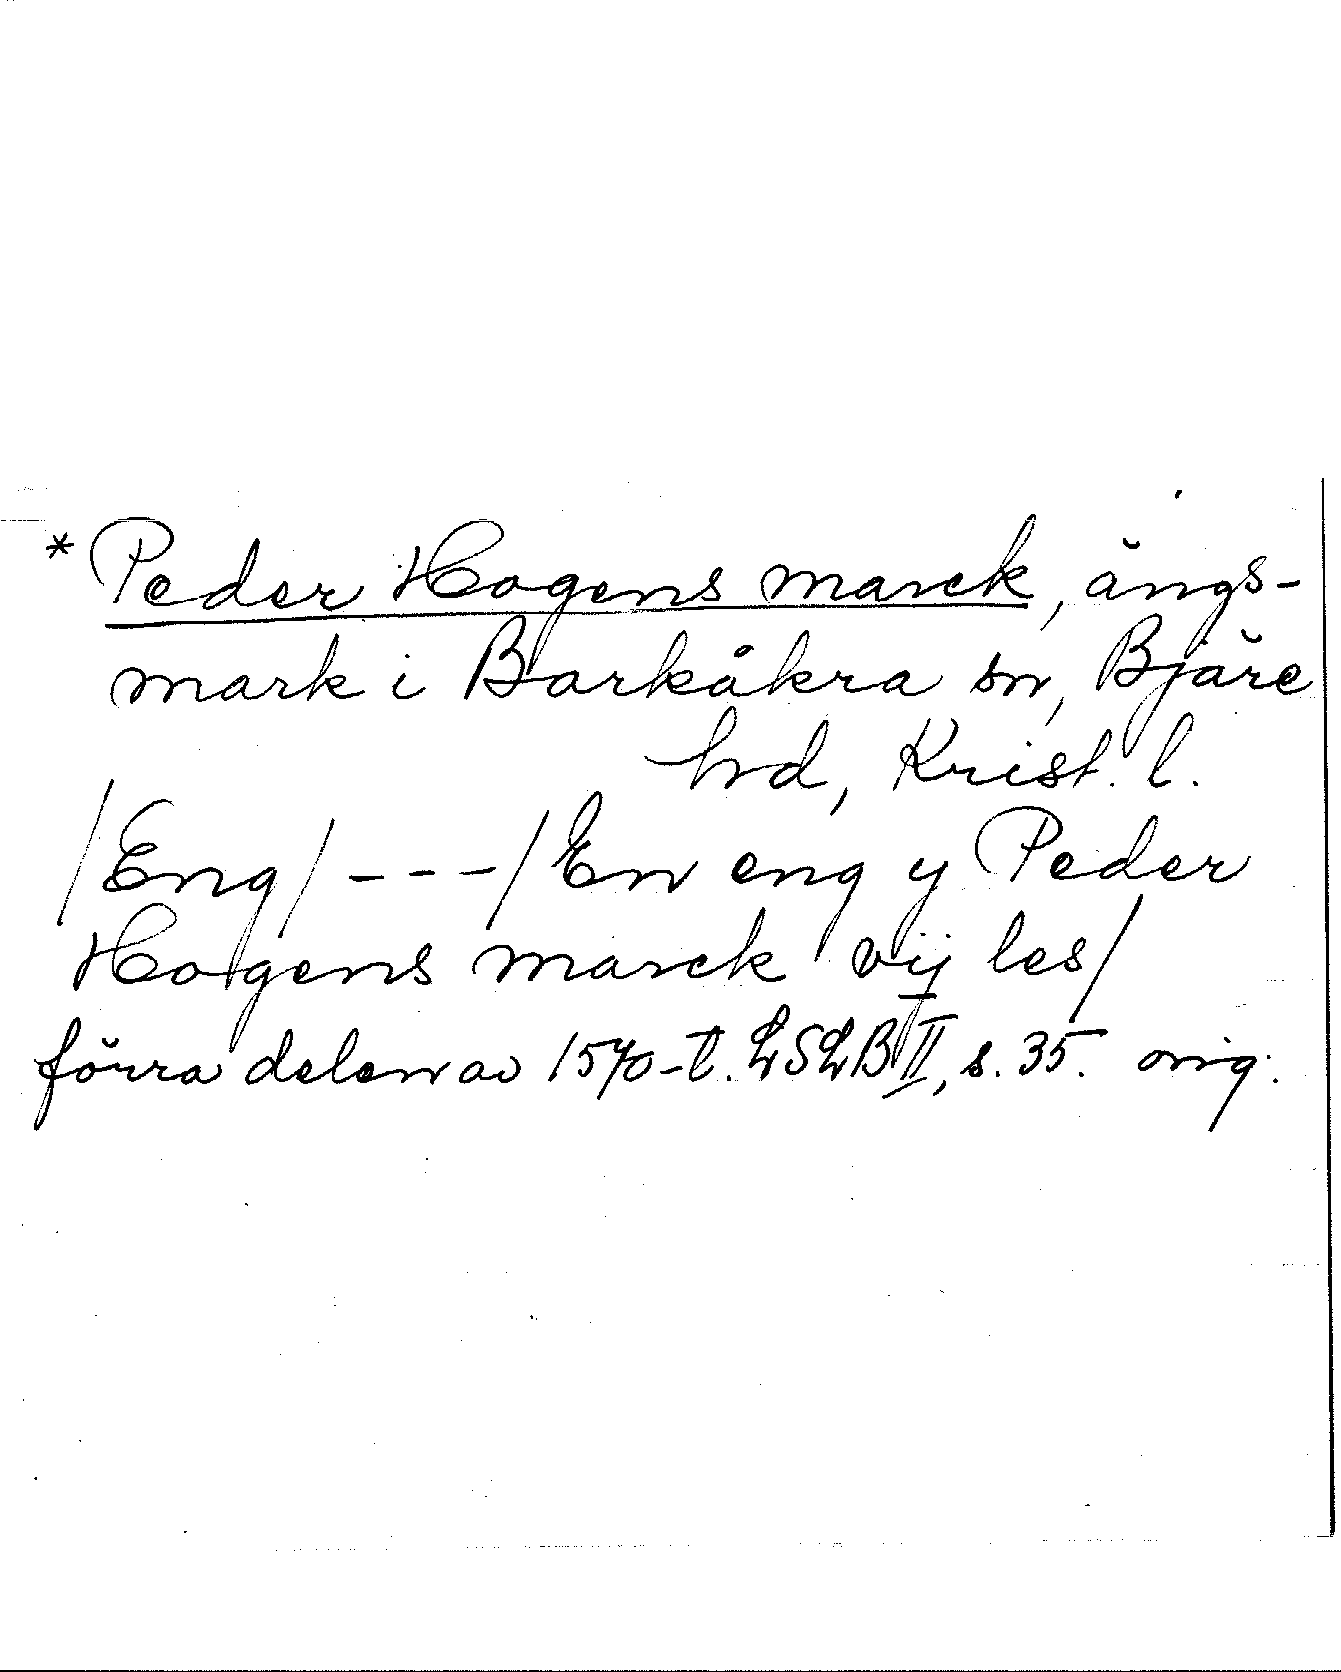 * Peder Hogens marck, ängs-
mark i Barkåkra sn, Bjäre
hd, Krist. l.
/Eng/---/En eng y Peder
Hogens marck vij les/
förra delen av 1570-t. LSLB II, s. 35. orig.